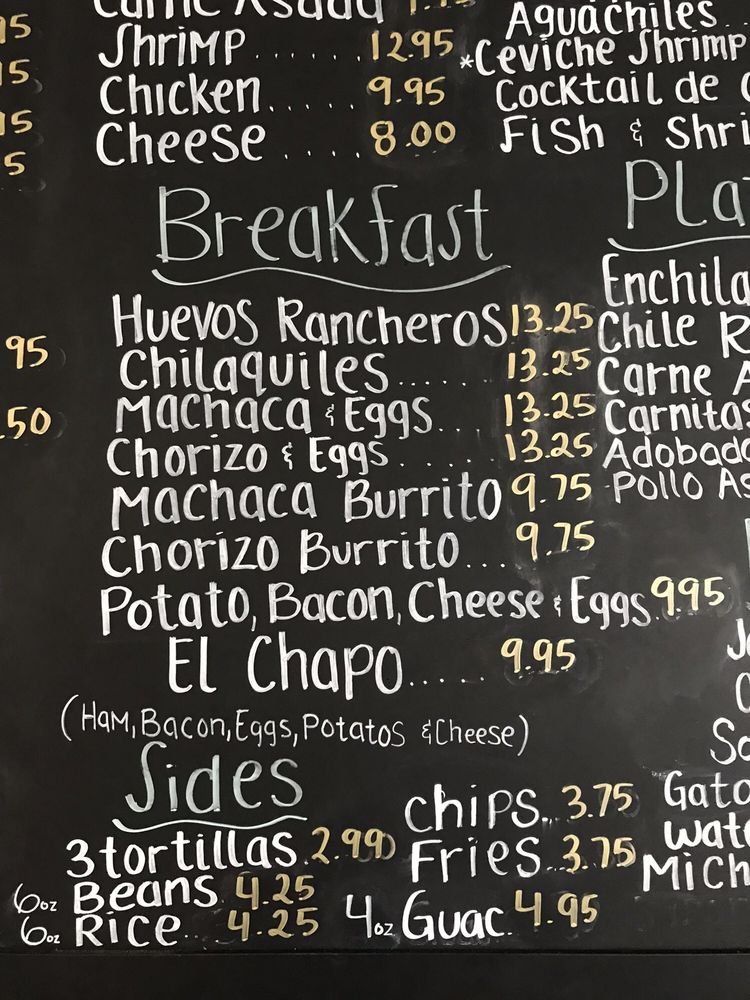 Shrimp ...... 12.95
Chicken ..... 9.95
Cheese .... 8.00
Aguachiles
*Ceviche Shrimp
Cocktail de
Fish & Shri
Breakfast
Huevos Rancheros 13.25
Chilaquiles ...... 13.25
Machaca & Eggs ... 13.25
Chorizo & Eggs ..... 13.25
Machaca Burrito 9.75
Chorizo Burrito... 9.75
Potato, Bacon, Cheese & Eggs 9.95
El Chapo ..... 9.95
(Ham, Bacon, Eggs, Potatos & Cheese)
Sides
3 tortillas. 2.99
6oz Beans. 4.25
6oz Rice ... 4.25
Chips.. 3.75
Fries. 3.75
4oz Guac. 4.95
Pla
Enchila
Chile R
Carne A
Carnitas
Adobada
Pollo As
95
.50